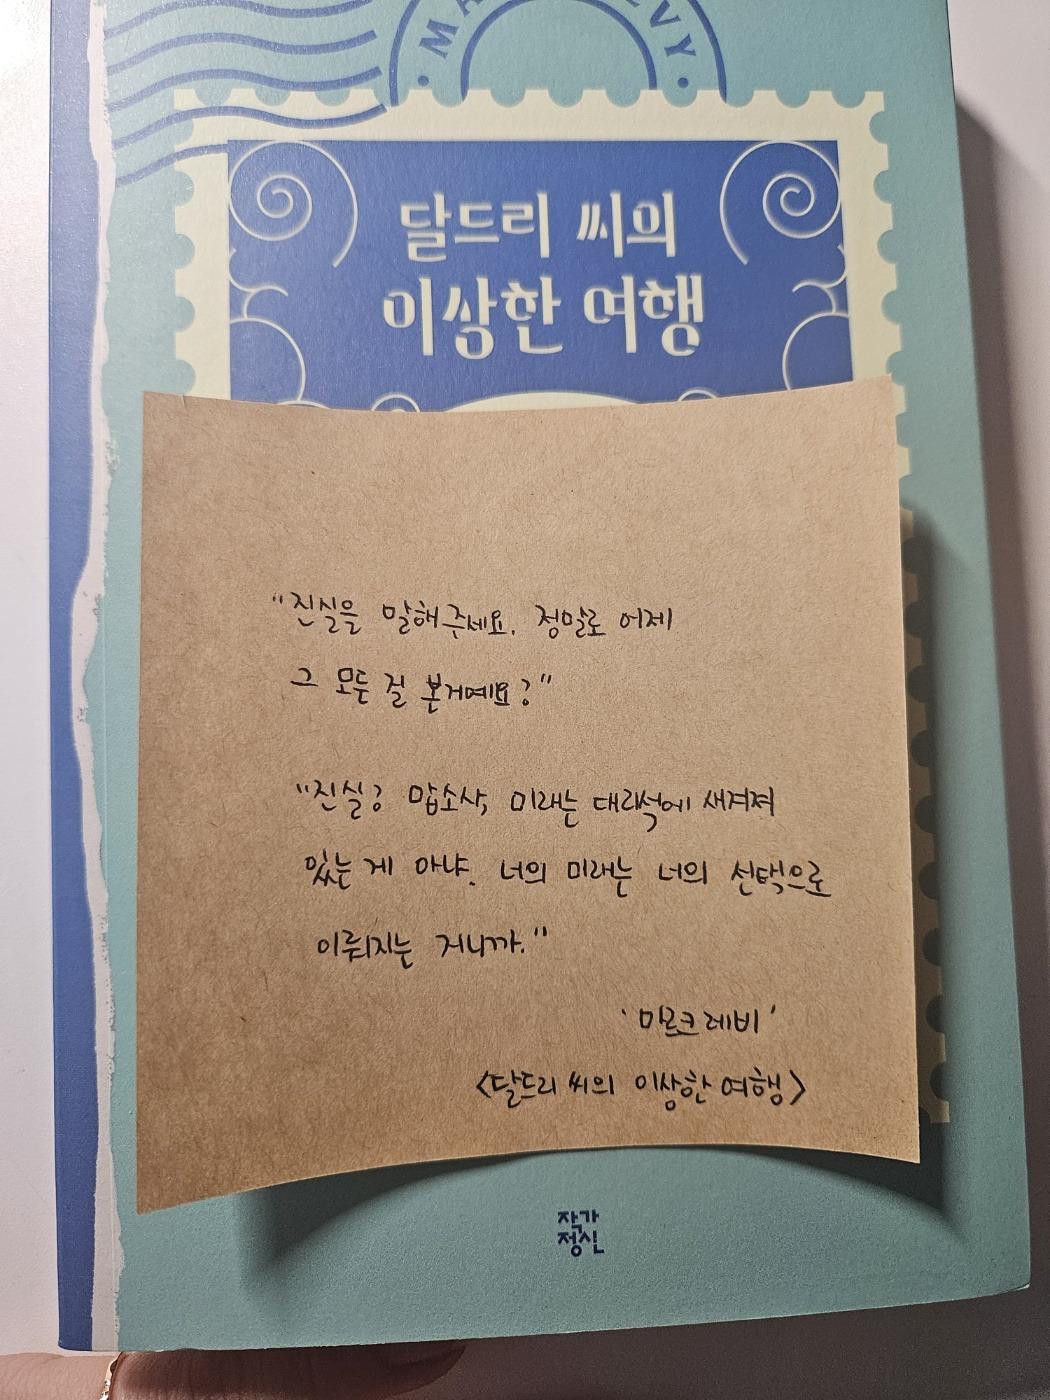 달드리 씨의
이상한 여행
"진실을 말해주세요. 정말로 어제
그 모든 걸 본거예요?"
"진실? 맙소사, 미래는 대리석에 새겨져
있는 게 아냐. 너의 미래는 너의 선택으로
이뤄지는 거니까."
'마르크 레비'
<달드리 씨의 이상한 여행>
작가
정신